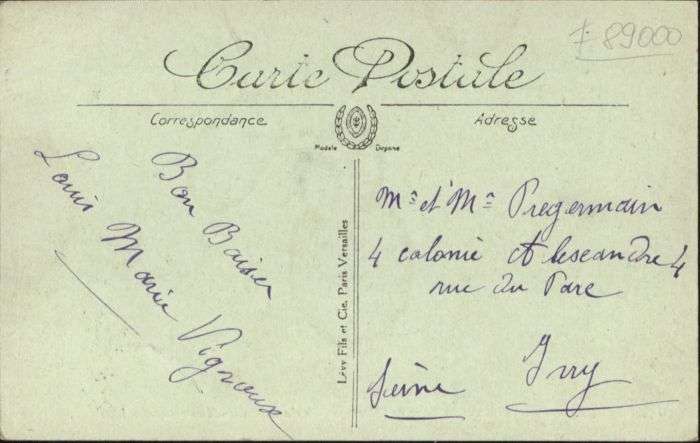 89000
Carte Postale
Correspondance
Adresse
Modèle Déposé
Bon Baiser
Louis Marie Vigneux
Lévy Fils et Cie, Paris Versailles
Mr et Mme Pregermain
4 colonie Alexeandre 4
rue du Parc
Ivry
Seine